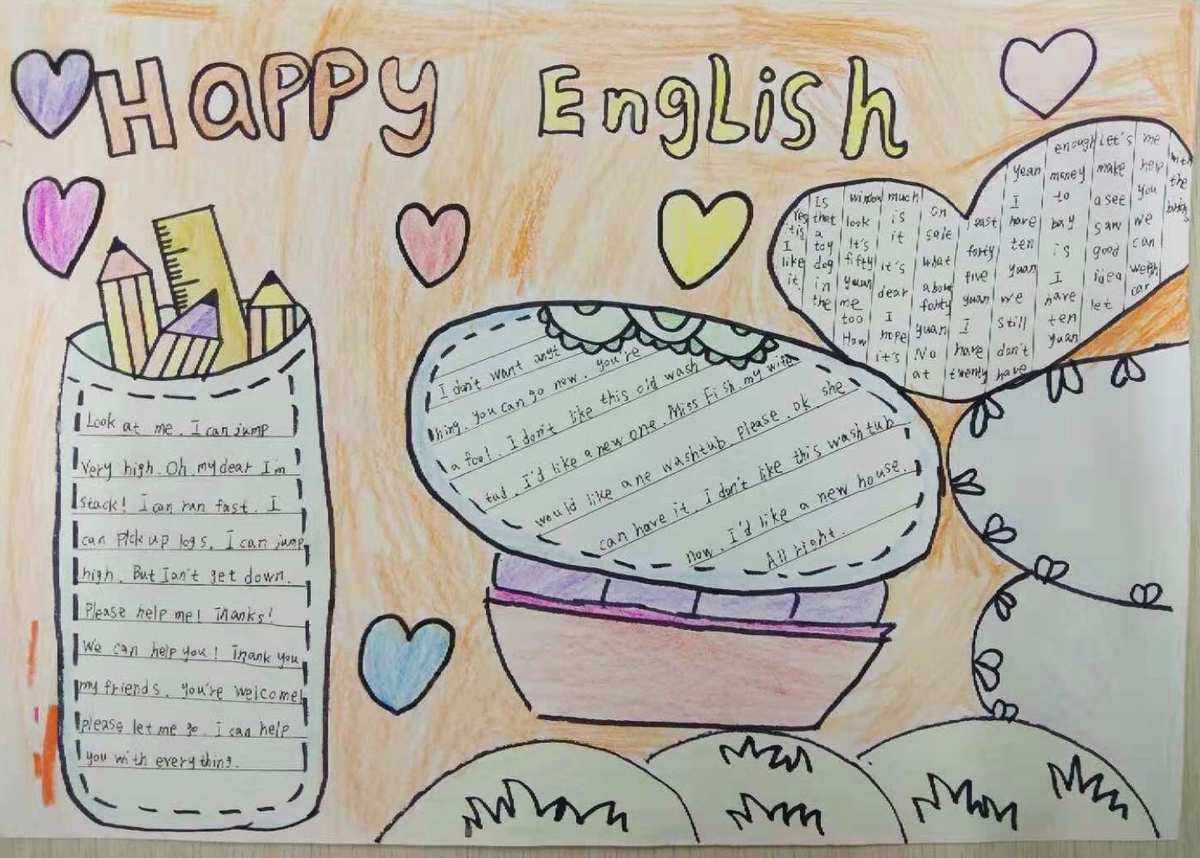 Happy English
Look at me. I can jump
very high. Oh my dear I'm
stack! I can ran fast. I
can pick up logs. I can jump
high. But Ian't get down.
Please help me! Thanks!
We can help you! Thank you
my friends. you're welcome!
please let me go. I can help
you with everything.
I don't want anyt
hing. you can go now. you're
a fool. I don't like this old wash
tud. I'd like a new one. Miss Fish. my wife
would like a ne washtub. Please. ok. she
can have it. I don't like this washtub
now. I'd like a new house.
All right.
Yes it is I like it.
Is that a toy dog in the
window look It's fifty yuan me too How
much is it It's dear I hope it's
on sale what about forty yuan No at
east forty five yuan I have twenty
yuan I have ten yuan we still don't have
enough money to bay is I have ten yuan
Let's make a see saw good idea let
me help you we can weigh car
with the